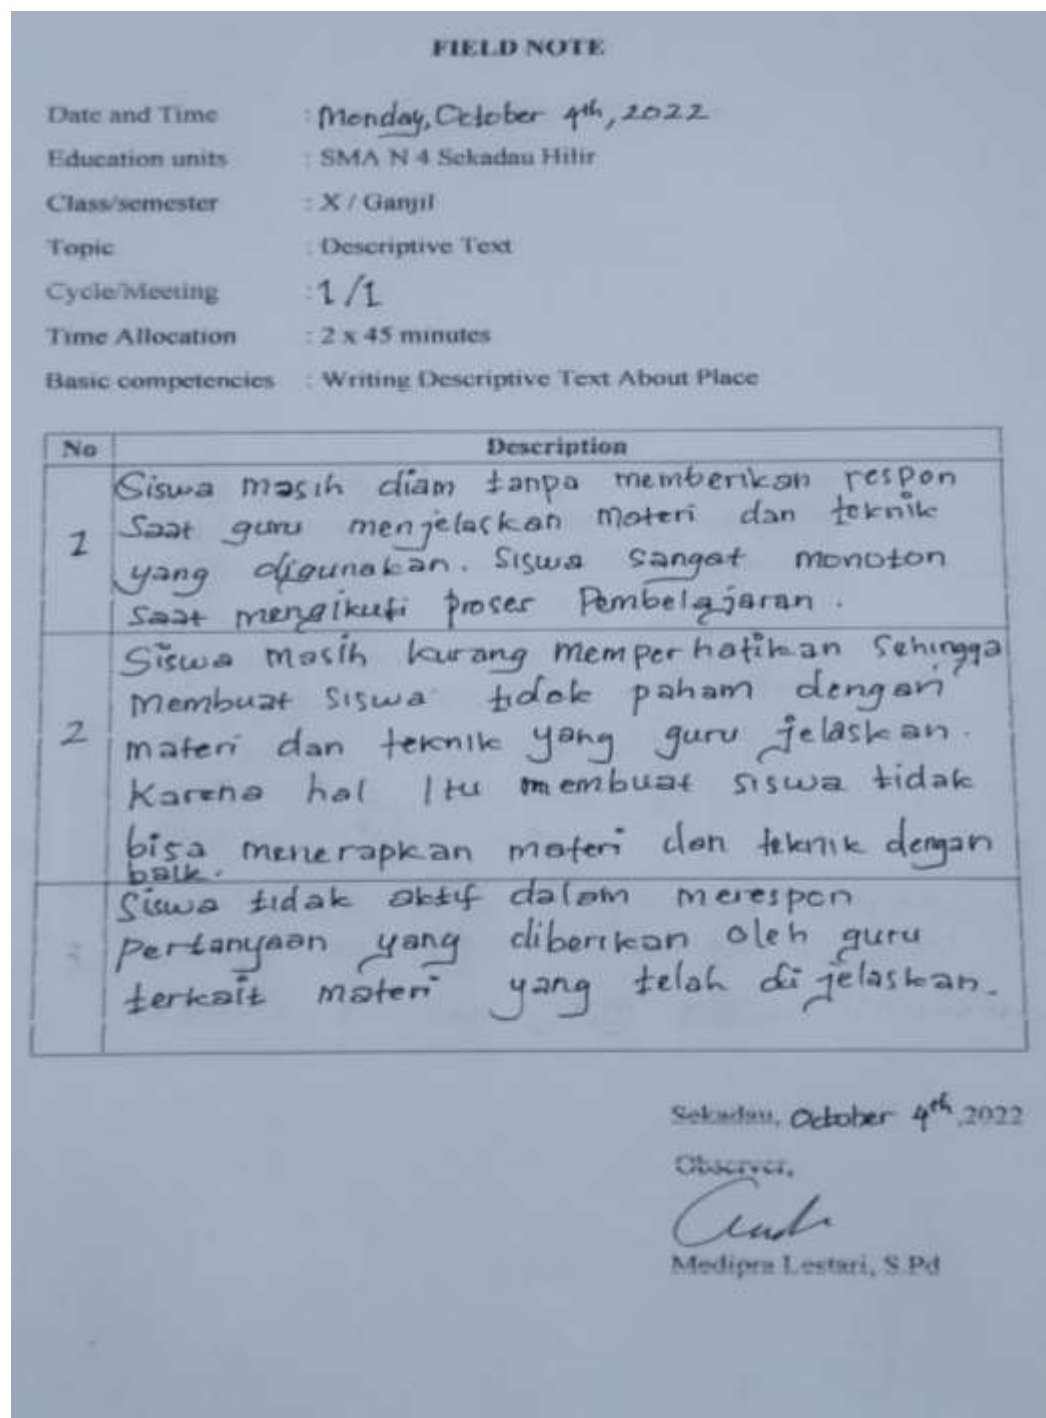 FIELD NOTE
Date and Time : Monday, October 4th, 2022
Education units : SMA N 4 Sekadau Hilir
Class/semester : X / Ganjil
Topic : Descriptive Text
Cycle/Meeting : 1/1
Time Allocation : 2 x 45 minutes
Basic competencies : Writing Descriptive Text About Place
No Description
Siswa masih diam tanpa memberikan respon
Saat guru menjelaskan materi dan teknik
1
yang digunakan. Siswa sangat monoton
Saat mengikuti proser Pembelajaran.
Siswa masih kurang memperhatikan Sehingga
Membuat siswa tidak paham dengan
2 materi dan teknik yang guru jelaskan.
Karena hal Itu membuat siswa tidak
bisa menerapkan materi dan teknik dengan
baik.
Siswa tidak aktif dalam merespon
3 Pertanyaan yang diberikan oleh guru
terkait materi yang telah di jelaskan.
Sekadau, October 4th, 2022
Observer,
Medipra Lestari, S.Pd